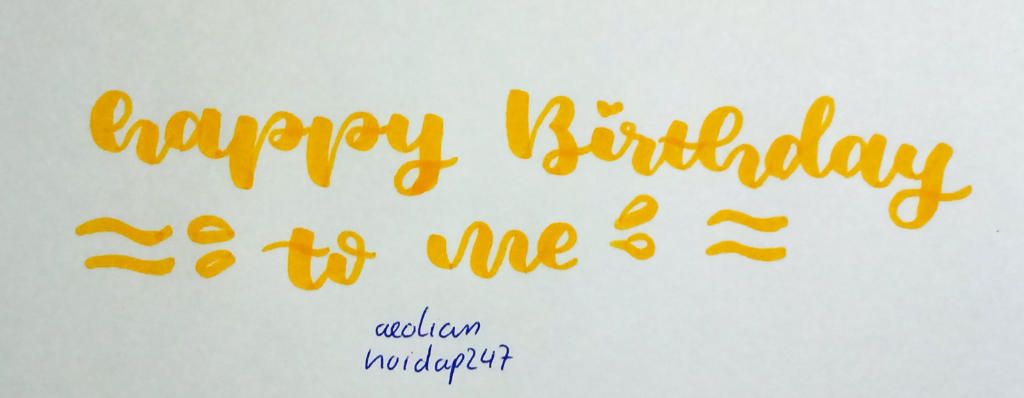 happy Birthday
to me
aeolian
hoidap247